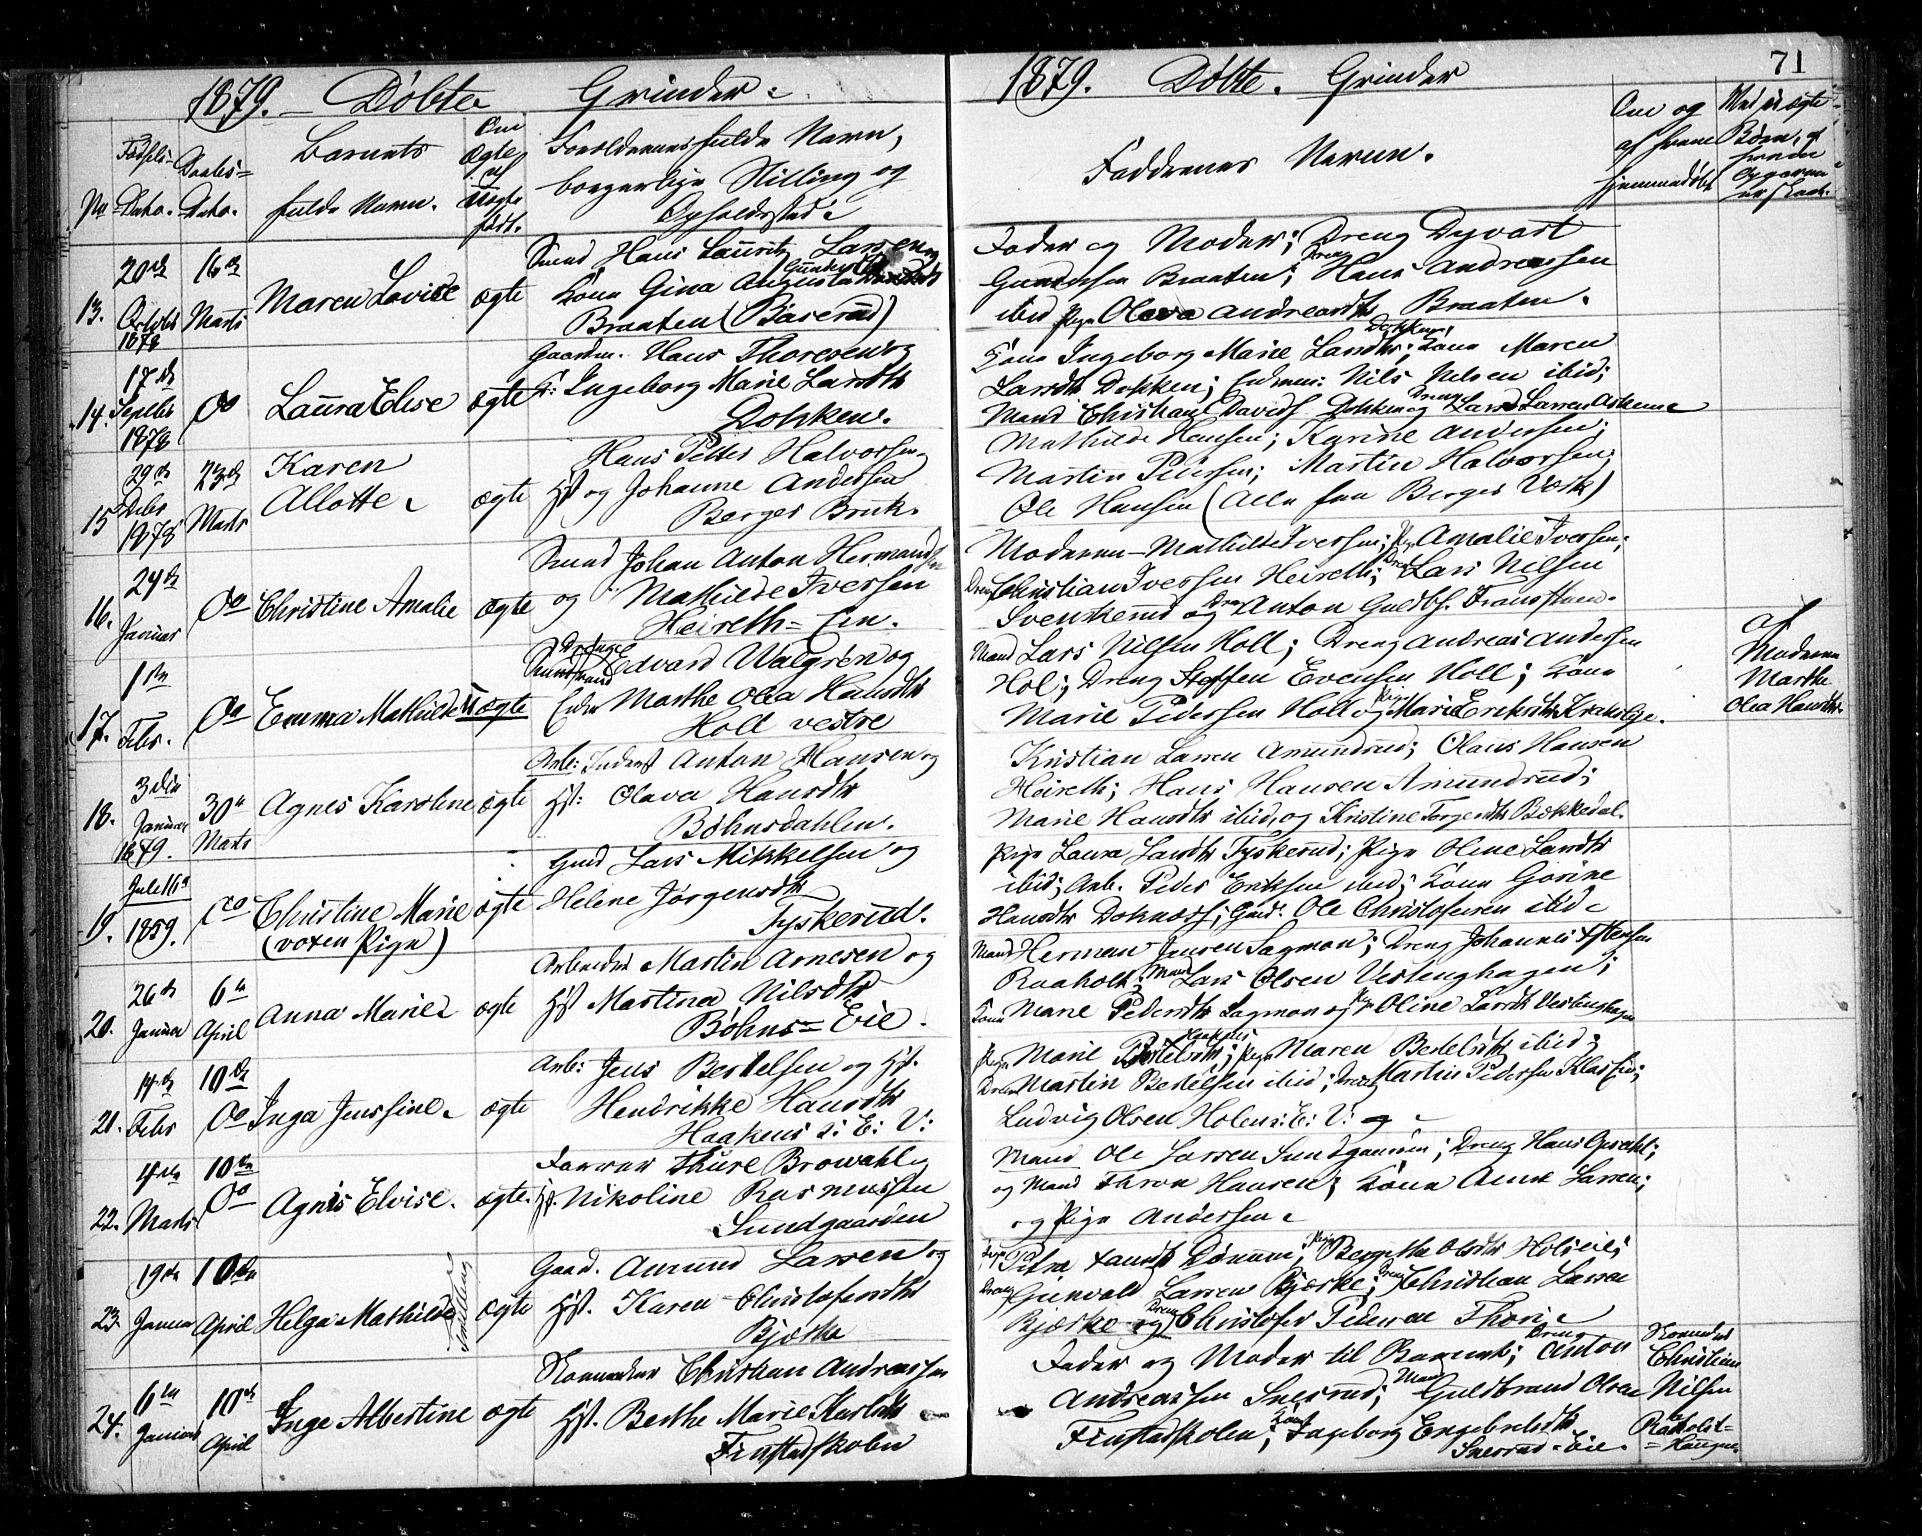 1879. — Døbte Grinder.
No Fødsels- Dato. Daabs- Dato. Barnets fulde Navn. Om ægte el. uægte født. Forældrenes fulde Navn, borgerlige Stilling og Opholdssted.
13. 20de October 1878 16de Marts Maren Lovise ægte
Smed Hans Lauritz Larsen og
Kone Gina Augusta
Braaten (Baaserud)
14. 17de Septbr 1878 Do Laura Elise ægte
Gaardm. Hans Thoresen og
K: Ingeborg Marie Larsdtr
Dokken.
15 29de Decbr 1878 23de Marts Karen Allotte. ægte
Hans Petter Halvorsen
Hst og Johanne Andersen
Berger Bruk.
16. 24de Januar Do Christine Amalie ægte
Smed Johan Anton Hermansen
og Mathilde Iversen
Heireth-Ein.
17. 1ste Febr. Do Emma Mathilde uægte
Edvard Walgrén og
Marthe Olea Hansdtr
Holl vestre
18. 3die Januar 1879. 30te Marts Agnes Karoline ægte
Arb: Inderst Anton Hansen og
Hst: Olava Hansdtr
Bøhnsdahlen.
19. Juli 16de 1859. Do Christine Marie (voxen Pige) ægte
Gmd Lars Mikkelsen og
Helene Jørgensdtr
Tyskerud.
20. 26de Januar 6te April Anna Marie ægte
Arbeider Martin Arnesen og
Hst Martina Nilsdtr
Bøhns-Eie.
21. 4de Febr 10de Do Inga Jenssine. ægte
Arb: Jens Bertelsen og Hst.
Hendrikke Hansdtr
Haakens i: E: V:
22. 4de Marts 10de Do Agnis Elvise. ægte.
Farver Thure Browahl og
Hst. Nikoline Rasmussen
Sundgaarden
23. 19de Januar 10de April Helga Mathilde ægte
Gaard. Amund Larsen og
Hst. Karen Christofersdtr
Bjørke
24. 6te Januar 10de April Inge Albertine ægte
Skomaker Christian Andreassen
Hst. Berthe Marie Karlsdtr
Finstadskolen
1879. Døbte. Grinder 71
Faddernes Navne. Om og af hvem hjemmedøbt Ved uægte Børn, af hvem Opgaven er skeet.
Fader og Moder; Dreng Dyvart
Gundersen Braaten; Dreng Hans Andreassen
ibid Pige Olava Andreasdtr Braaten.
Kone Ingeborg Marie Larsdtr Dokken; Kone Maren
Larsdtr Dokken; Enkem: Nils Nilsen ibid;
Mand Christian Davids. Dokken og Dreng Lars Larsen
Mathilde Hansen; Karine Andersen;
Martin Pedersen; Martin Halvorsen;
Ole Hansen (Alle fra Berger Værk)
Moderen Mathilde Iversen; Pige Amalie Iversen;
Dreng Christian Iversen Heireth; Dreng Lars Nilsen
Svenkerud og Dreng Anton Guldbs. Transstuen.
Mand Lars Nilsen Holl; Dreng Andreas Andersen
Hol; Dreng Steffen Evensen Holl; Kone
Marie Pedersen Holl og Pige Marie Eriksdtr Krakelye. af Moderen Marthe Olea Hansdtr.
Kristian Larsen Amundrud; Olaus Hansen
Heireth; Hans Hansen Amundrud;
Marie Hansdtr ibid, og Kristine Torgersdtr Bækkedal.
Pige Laura Larsdtr Tyskerud; Pige Oline Larsdtr
ibid; Arb. Peder Eriksen ibid; Kone Gorine
Hansdtr Doknæss; Gmd. Ole Christofersen ibid.
Mand Herman Jensen Sagmon; Dreng Johannes
Raaholt; Mand Lars Olsen Vestenghagen;
Kone Marie Pedersdtr Sagmon og Pige Oline Larsdtr Vestenghagen
Pige Marie Bertelsdtr; Pige Maren Bertelsdtr ibid;
Dreng Martin Bertelsen ibid; Dreng Martin Pedersen
Ludvig Olsen Holens: E: V: og
Mand Ole Larsen Sundgaarden; Dreng Hans Opsahl;
og Mand Thron Hansen; Kone Anne Larsen;
og Pige Andersen.
Pige Petra Pige Bergithe Olsdtr Holseie;
Dreng Gunvald Larsen Bjørke; Dreng Christian Larsen
Bjørke og Dreng Christofer Pedersen
Fader og Moder til Barnet; Dreng Anton
Andreassen Snesrud; Mand Guldbrand Olsen
Finstadskolen; Kone Ingeborg Engebretsdtr
Snesrud-Eie. Skomaker Christian Nilsen Raaholt-Haugen